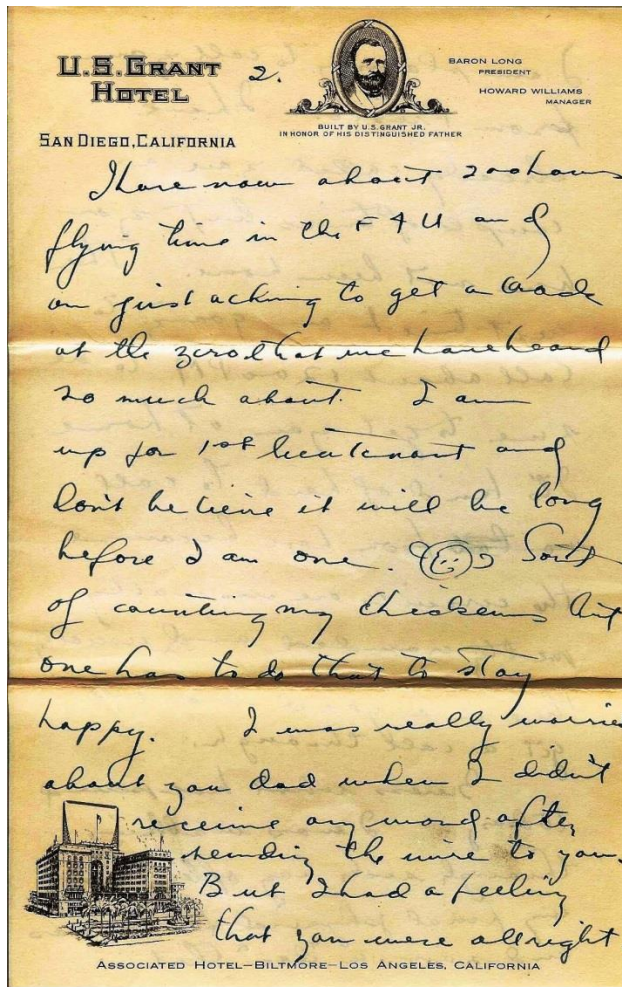 U.S. GRANT
HOTEL
SAN DIEGO, CALIFORNIA
2.
BUILT BY U.S. GRANT JR.
IN HONOR OF HIS DISTINGUISHED FATHER
BARON LONG
PRESIDENT
HOWARD WILLIAMS
MANAGER
I have now about 200 hours
flying time in the F4U and
am just aching to get a crack
at the zero that we have heard
so much about. I am
up for 1st lieutenant and
don't believe it will be long
before I am one. Sort
of counting my chickens but
one has to do that to stay
happy. I was really worried
about you dad when I didn't
receive any word after
sending the wire to you.
But I had a feeling
that you were allright
ASSOCIATED HOTEL-BILTMORE-LOS ANGELES, CALIFORNIA